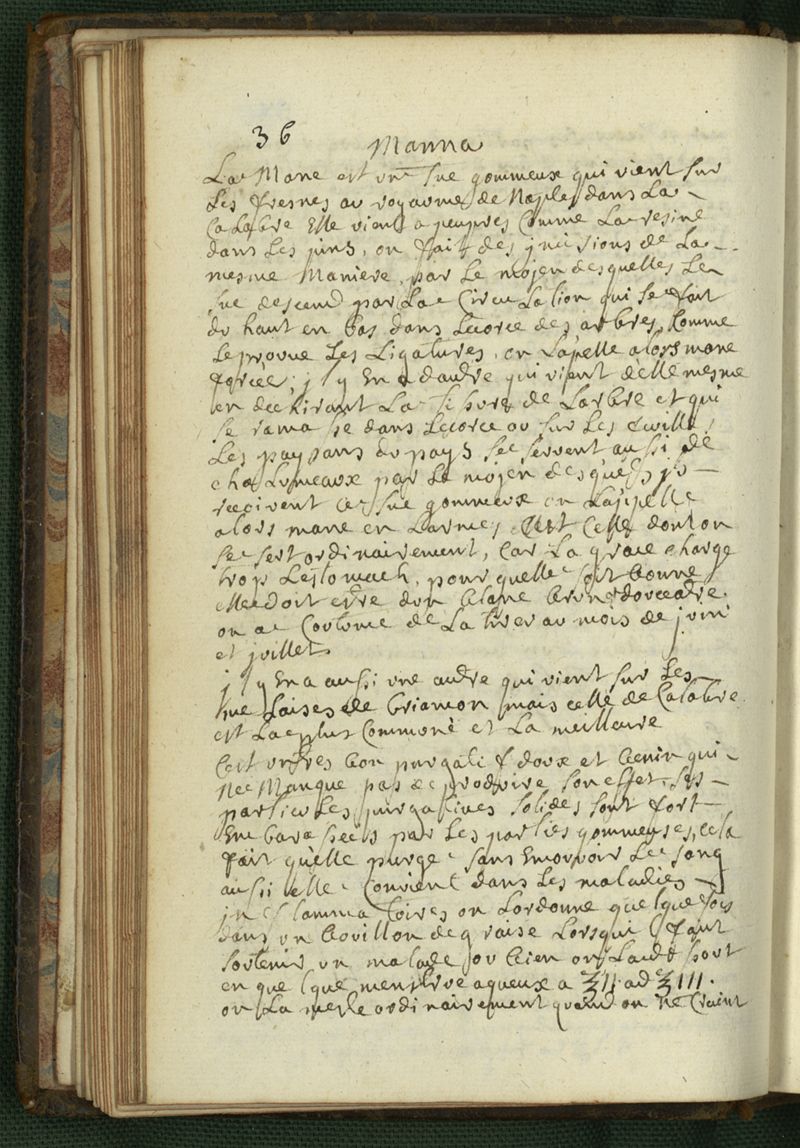 36 Manna
La Mane est un Suc gommeux qui vient sur
Les fresnes au royaume de Naples dans La
Calabre Elle vient a peupres Comme La resine
dans Les pins, on fait des jncisions de La
mesme Maniere, par Le mojen desquelles Le
Suc descend par La Circulation qui se fait
du haut en bas dans Lecorce des arbres, Comme
Le prouue Les Ligatures, on Lapelle alors mane
forcée; j y En a dautre qui vient delle mesme
en dechirant La fibre de Larbre et qui
se ramasse dans Lecorce ou sur Les feuilles
Les paysans du pays se servent aussi de
chalumeaux par Le mojen desquels js
recoivent Ce Suc gommeux on Lappelle
alors mane en Larmes, Cest Celle dont on
se sert ordinairement, Car La grace charge
trop Lestomach, pour quelle soit bonne
elle doit estre dun blanc brun et douceatre
on a Coutume de La tirer au mois de juin
et juillet
j y En a aussi une autre qui vient sur Les
de briancon mais celle de Calabre
est La plus Commune et La meilleure
Cest un tres bon purgatif doux et benin qui
Ne Manque pas de produire son effet, Ses
particules purgatives solides sont fort
Embarassées par Les parties gommeuses, cela
fait quelle purge sans Emouvoir Le sang
aussi elle Convient dans Les maladies
jnflammatoires on Lordonne quelquefois
dans un bouillon de graise Lorsquil faut
soutenir un malade ou bien on
en quelque menstrue aqueux a ℥II ad ℥III.
on La mesle ordinairement quand on ne Craint